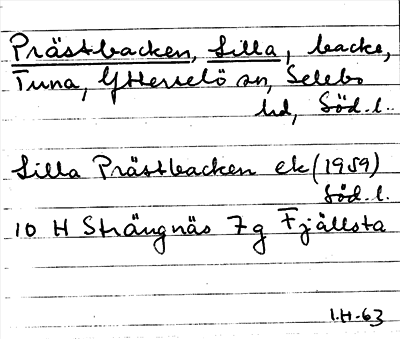 Prästbacken, Lilla, backe,
Tuna, Ytterselö sn, Selebo
hd, Söd.l.
Lilla Prästbacken ek (1959)
Söd.l.
10 H Strängnäs 7g Fjällsta
I.H-63